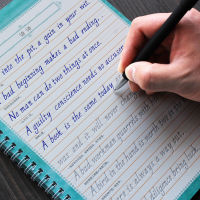 into the pit, a gain in your wit.
bad beginning makes a bad ending...
No man can do two things at once.
A guilty conscience needs no accuser
A book is the same today
was and it will never
A bad workman quarrels with
A bird in the hand is worth two
is always a way out